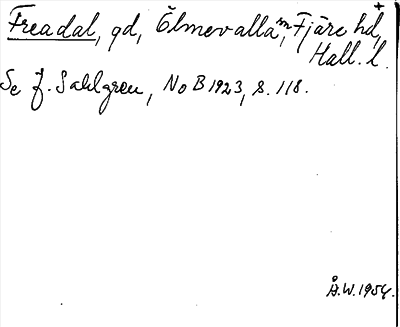 Freadal, gd, Ölmevalla sn, Fjäre hd,
Hall. l.
Se J. Sahlgren, NoB 1923, s. 118.
Å.W. 1954.